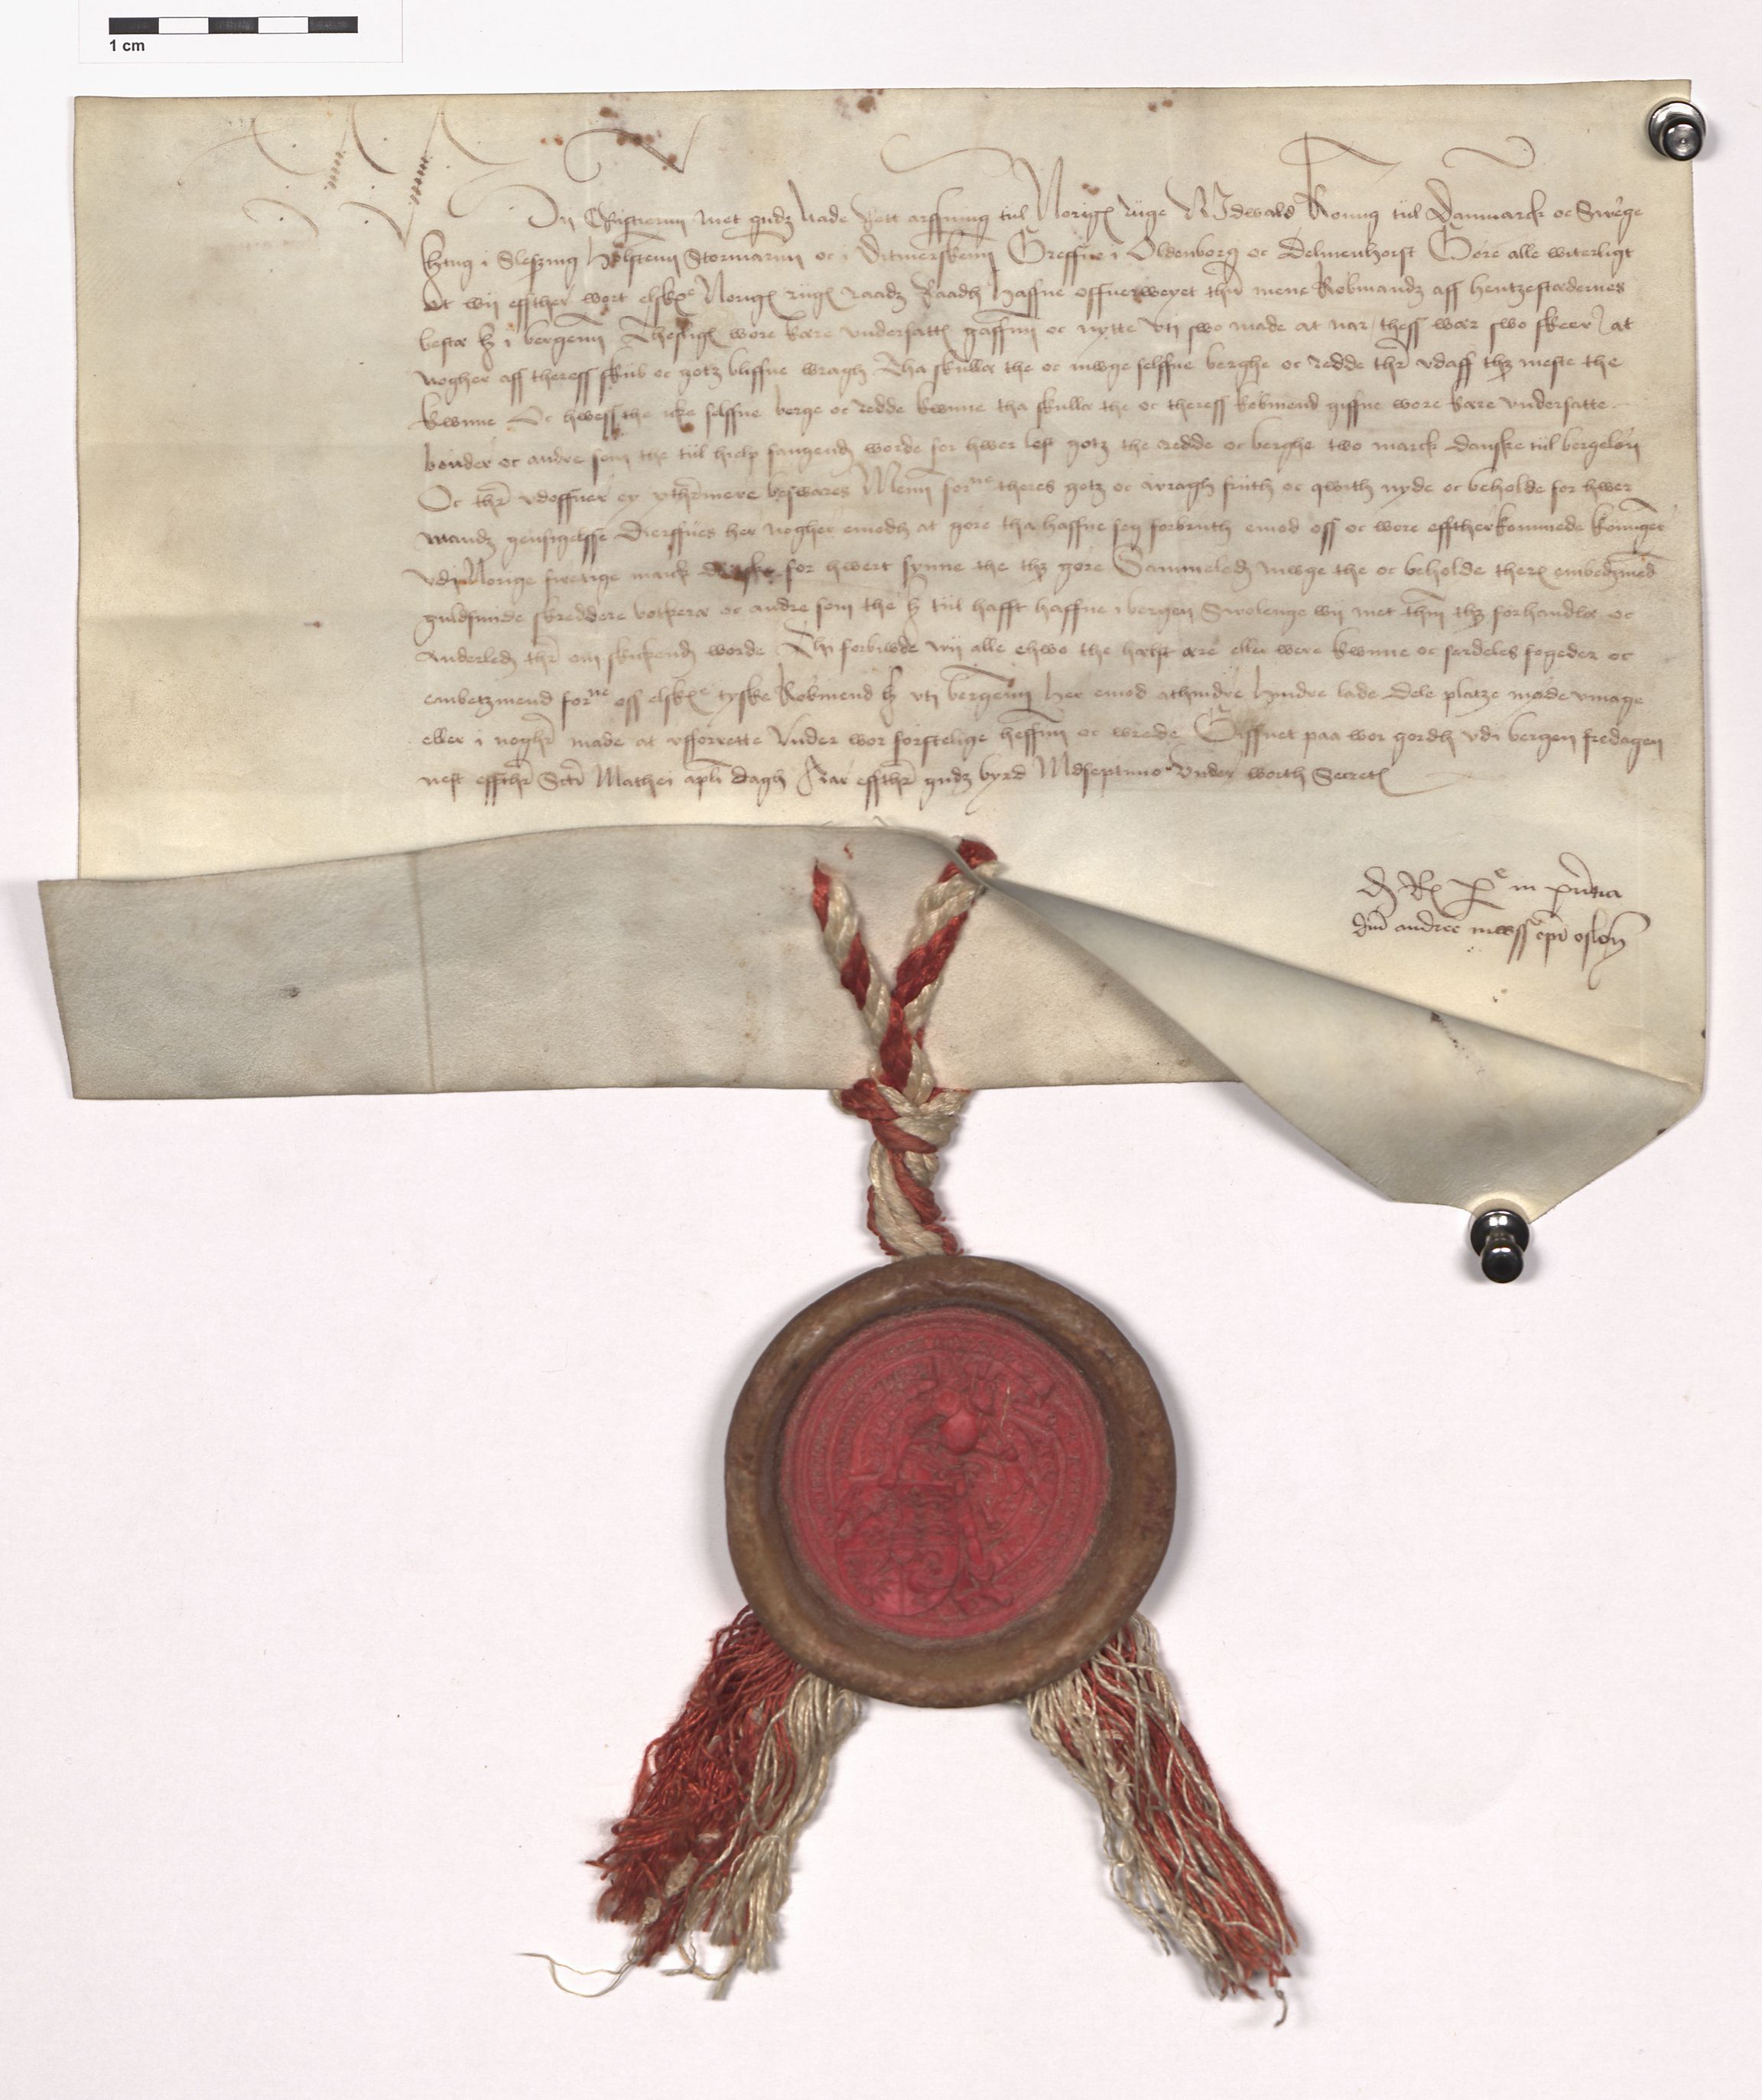 1 cm
Wij Cristiernn met gudz nade rett arffning tiil Norigis riige Wdwald Konung tiil Danmarck oc Swerge
Htug i Sleszuig Holstenn Stormarnn oc i Ditmerskenn Greffue i Oldenborg oc Delmenhorst Gøre alle witerligt
at wij effther wort elskᵉ Norigis riigis raadz Raadh haffue offuerweyet thn mene Købmandz aff hentzestædernes
beste h i bergenn Thesligis wore kære vndersatte gaffnn oc nytte vti swo made at nar thess wær swo skeer at
nogher aff theress skib oc gotz bliffue wragh Tha skulle the oc mwge selffue berghe oc redde thr vdaff thz meste the
kwnne Oc hwess the icke selffue berge oc redde kwnne tha skulle the oc theress købmend giffue wore kære vndersatte
bønder oc andre som the tiil hielp fangendis worde for hwer lest gotz the redde oc berghe two marck danske tiil bergeløn
Oc thr vdoffuer ey ythrmere beswares Menn forne theres gotz oc wragh friith oc qwith nyde oc beholde for hwer
mandz gensigelsse Dierffues her nogher emodh at gøre tha haffue seg forbruth emod oss oc wore effther kommede koninger
vdi Norige firetige marck danske for hwert synne the thz gøre Sammeledis mwge the oc beholde theris embedzmend
guldsmide skreddere bødkere oc andre som the h tiil hafft haffue i bergen Swolenge wij met thm thz forhandle oc
Anderledis thr om skickendis worde Thi forbiwde wij alle ehwo the helst ære eller were kwnne oc serdeles fogeder oc
embetzmend forne oss elskᵉ tyske Købmend h vti bergenn her emod athindre hindre lade dele platze møde vmage
eller i noghr made at vfforrette Vnder wor førstelige heffnn oc wrede Giffuet paa wor gordh vdi bergen fredagen
nest effthr Sancti Mathei apli dagh Aar effthr gudz byrd Mdseptimo Vnder worth Secret
D R P in pntia
dni andree mwss epi oslon